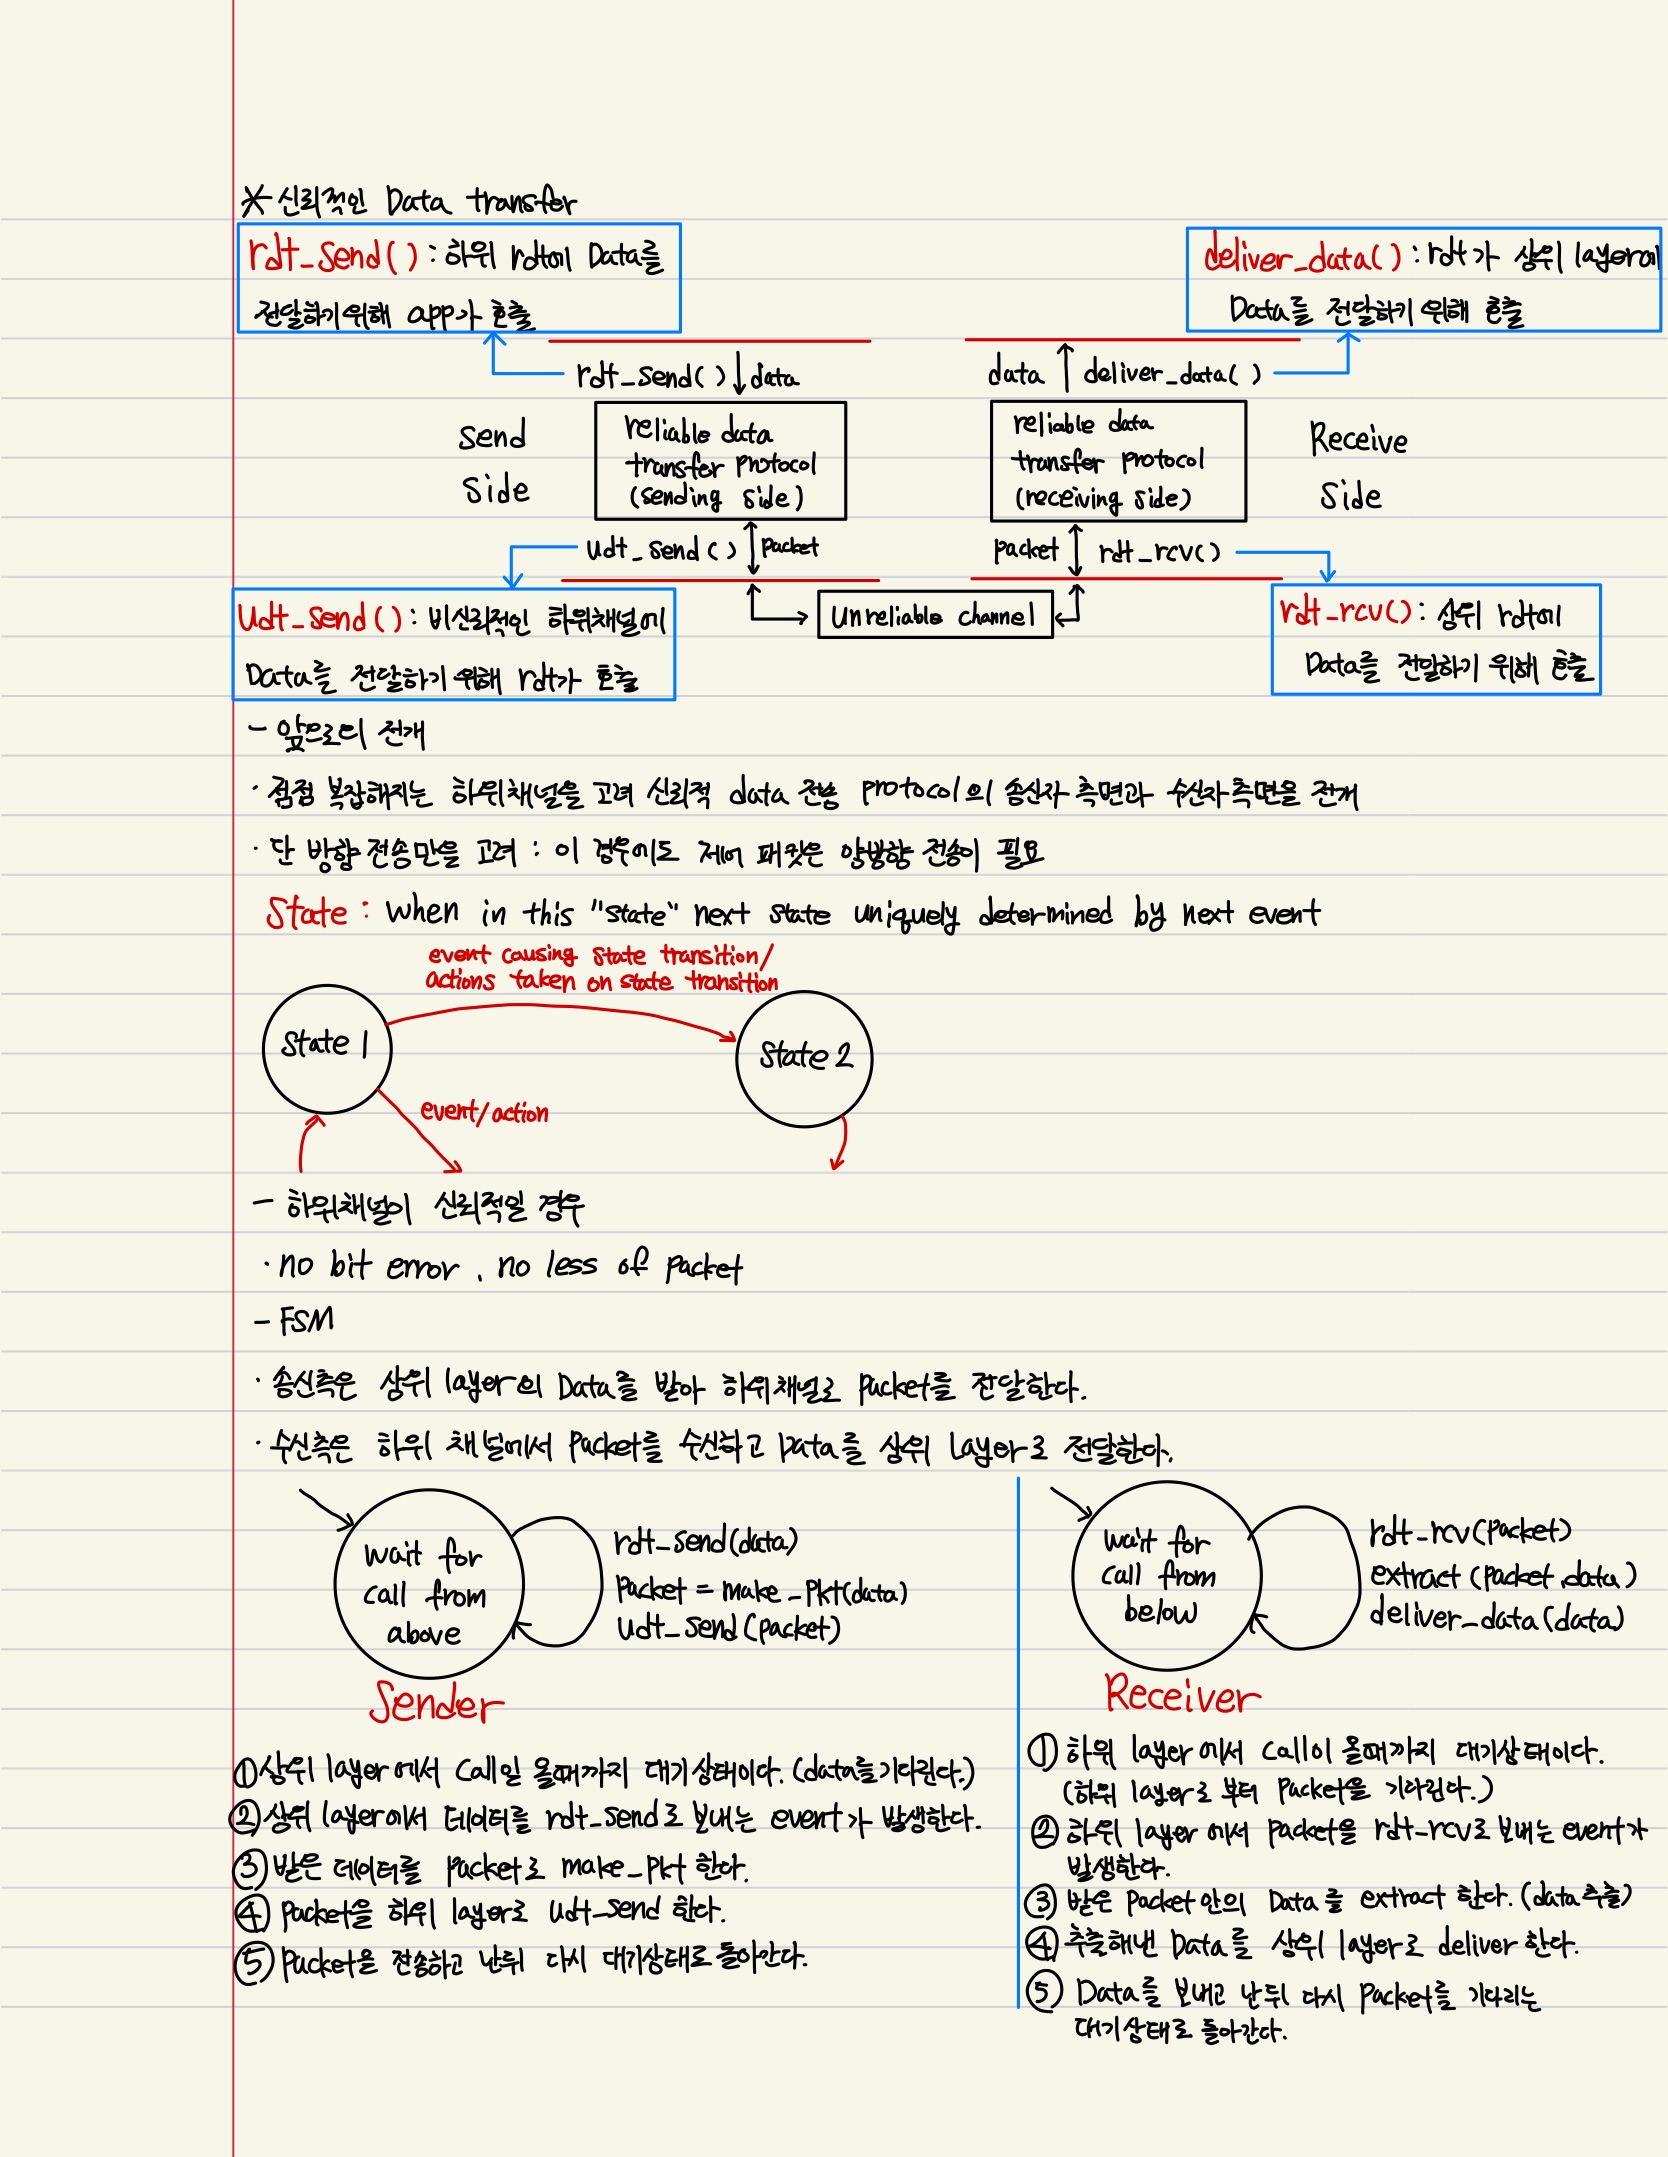 * 신뢰적인 Data transfer
rdt_send() : 하위 rdt에 Data를
전달하기 위해 app가 호출
deliver_data() : rdt가 상위 layer에
Data를 전달하기 위해 호출
rdt_send() data
data deliver_data()
Send
Side
reliable data
transfer protocol
(sending side)
reliable data
transfer protocol
(receiving side)
Receive
Side
udt_send() packet
packet rdt_rcv()
Unreliable channel
Udt_send() : 비신뢰적인 하위채널에
Data를 전달하기 위해 rdt가 호출
rdt_rcv() : 상위 rdt에
Data를 전달하기 위해 호출
- 앞으로의 전개
· 점점 복잡해지는 하위채널을 고려 신뢰적 data 전송 protocol의 송신자 측면과 수신자측면을 전개
· 단 방향 전송만을 고려 : 이 경우에도 제어 패킷은 양방향 전송이 필요
State : when in this "state" next state uniquely determined by next event
event causing state transition/
actions taken on state transition
State 1
State 2
event/action
- 하위채널이 신뢰적일 경우
· no bit error, no less of packet
- FSM
· 송신측은 상위 layer의 Data를 받아 하위채널로 Packet를 전달한다.
· 수신측은 하위 채널에서 Packet를 수신하고 Data를 상위 layer로 전달한다.
wait for
call from
above
rdt_send(data)
Packet = make_pkt(data)
Udt_send(packet)
Sender
wait for
call from
below
rdt_rcv(packet)
extract (packet,data)
deliver_data(data)
Receiver
① 상위 layer에서 Call일 올때까지 대기상태이다. (data를 기다린다.)
② 상위 layer에서 데이터를 rdt_send로 보내는 event가 발생한다.
③ 받은 데이터를 Packet로 make_pkt 한다.
④ Packet을 하위 layer로 udt_send 한다.
⑤ Packet을 전송하고 난뒤 다시 대기상태로 돌아간다.
① 하위 layer에서 Call이 올때까지 대기상태이다.
(하위 layer로 부터 Packet을 기다린다.)
② 하위 layer에서 Packet을 rdt-rcv로 보내는 event가
발생한다.
③ 받은 Packet 안의 Data를 extract 한다. (data 추출)
④ 추출해낸 Data를 상위 layer로 deliver 한다.
⑤ Data를 보내고 난뒤 다시 Packet를 기다리는
대기상태로 돌아간다.